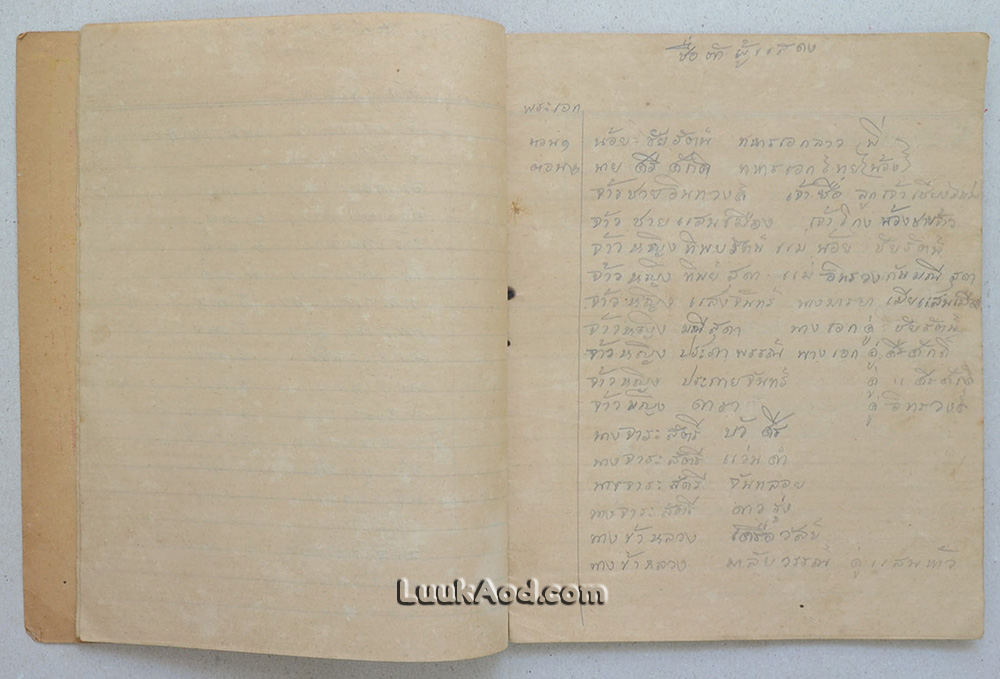 ชื่อตัวผู้แสดง
พระเอก
น้อย ชัยรัตน์ ทหารเอกลาว (พี่)
นาย คีรี ศักดิ์ ทหารเอกไทย (น้อง)
จ้าวชายอินทวงส์ เจ้าชื่อ ลูกเจ้าเชียงใหม่
จ้าวชายแสนเมือง น้องชายจ้าว
จ้าวหญิงทิพยรัตน์ แม่น้อย ชัยรัตน์
จ้าวหญิงทิพย์สุดา แม่ อินทวงกับมณีสุดา
จ้าวหญิง แสงจันทร์ นางมารยา เมียแสนเมือง
จ้าวหญิง มณีสุดา นางเอก คู่ ชัยรัตน์
จ้าวหญิง ประภาพรรณ์ นางเอก คู่ คีรีศักดิ์
จ้าวหญิง ประกายจันทร์ คู่
จ้าวหญิง ดารา คู่ อินทรวงส์
นางจาระสัตรี บัวคีรี
นางจาระสัตรี แว่นคำ
นางจาระสัตรี จันทลอย
นางจาระสัตรี ดาวรุ่ง
นางข้าหลวง เครือวัลย์
นางข้าหลวง มาลัยวรรณ์ คู่
LuukAod.com